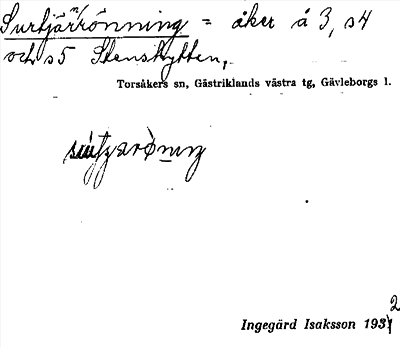 Surtjärnrönning = åker å 3, s4
och s5 Stenshytten,
Torsåkers sn, Gästriklands västra tg, Gävleborgs l.
Ingegärd Isaksson 1932